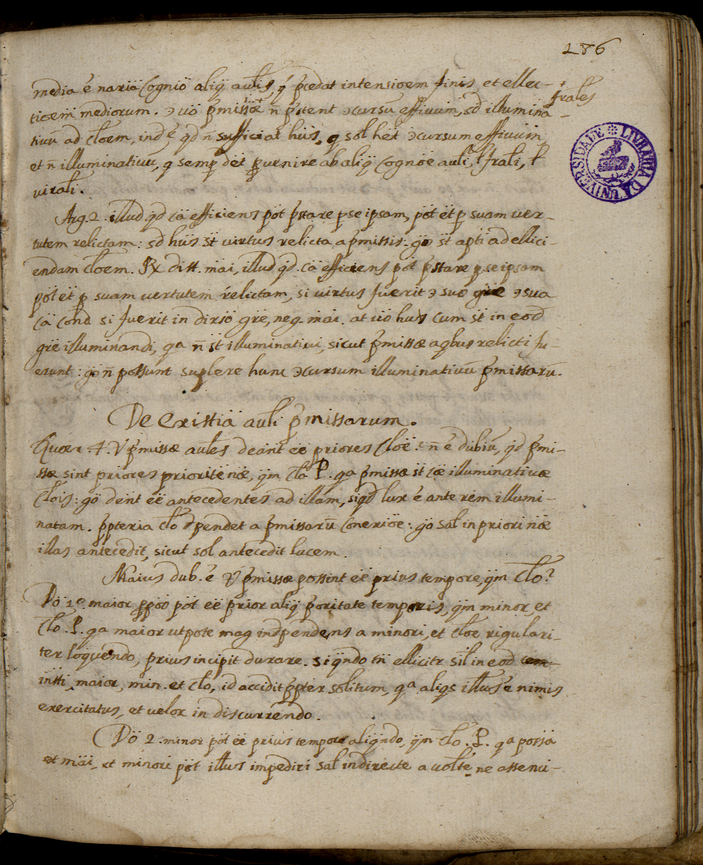 186
media é naria Cognio aliq̃ aulis, q̃ p̃cedat intensioem finis, et ellec-
tioem mediorum. ɔ uõ p̃missæ ñ p̃stent ɔcursũ effiuum, sd illumina-
frales
tiuũ ad cloem, inde qd ñ sufficiat huis, q̃ sol het ɔcursum effiuum
et ñ illuminatiuũ, q semp det p̃uenire ab aliq̃ Cognõe auli, l frali, l
virali.
Arg. 2. illud qd cã efficiens põt p̃stare p se ipsam, põt et p suam ver-
tutem relictam: sd huis st virtus relicta a p̃missis. gõ st apti ad ellici-
endam cloem. R. dist. mai, illud qd cã efficiens põt p̃stare p se ipsam
põt et p suam vertutem relictam, si virtus fuerit ɔ suo gre ɔ sua
cã cond. si fuerit in dirso gre, neg. mai. at uõ huis cum st in eod
gre illuminandi, qa ñ st illuminatiui, sicut p̃missæ aqbus relicti fu-
erunt: gõ ñ possunt suplere hunc ɔcursum illuminatiuũ p̃missarũ.
De existia auli p̃missarum.
Quær 4. V p̃missæ aules deant eẽ priores Cloe? ñ é dubiũ, qd p̃mi-
ssæ sint priores prioritẽ næ, qm clo P. qa p̃missæ st cæ illuminatiuæ
Clois: gõ dent eẽ antecedentes ad illam, siqd lux é ante rem illumi-
natam. p̃pteria clo dpendet a p̃missarũ conexioe: gõ sal in priori næ
illas antecedit, sicut sol antecedit lucem.
Maius dub. é V p̃missæ possint eẽ prius tempore, qm clo?
Dõ 1º maior, p̃põo põt eẽ prior aliq̃ p̃oritate temporis, qm minor, et
Clo. P. qa maior utpote mag indpendens a minori, et cloe rigulari-
ter loquendo, prius incipit durare. si qndo tñ ellicitr sil in eod
insti, maior, min. et clo, id accidit p̃pter solitum, qa aliqs illtus é nimis
exercitatus, et velox in discurrendo.
Dõ 2. minor põt eẽ prius tempore aliqndo, qm clo. P. qa possã
et mãi, et minori põt illtus impediri sal indirecte a volte, ne assenti-
LIVRARIA DA UNIVERSIDADE